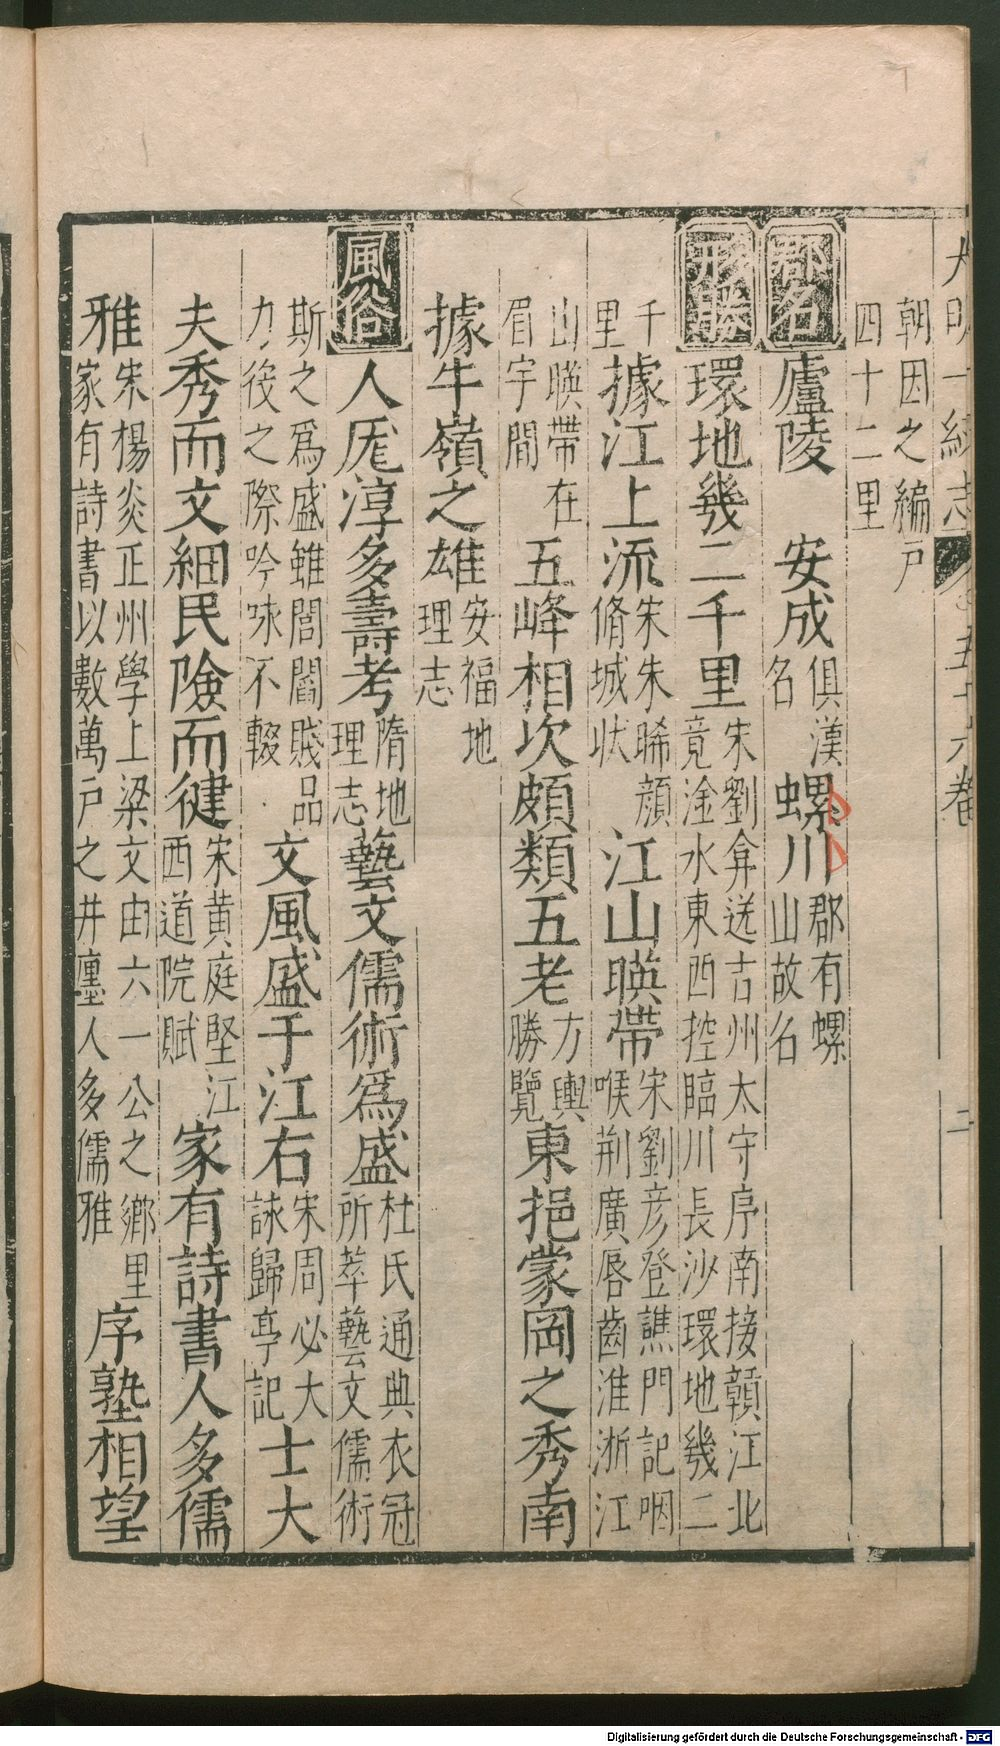 大明一統志 卷之五十六卷 二
朝因之編戶
四十二里
郡名 廬陵 安成 俱漢名 螺川 郡有螺山故名
形勝 環地幾二千里 宋劉弇送吉州太守序南接贛江北竟淦水東西控臨川長沙環地幾二
千里 據江上流 宋朱晞顔脩城狀 江山暎帶 宋劉彦登譙門記咽喉荆廣唇齒淮浙江
山暎帶在眉宇間 五峰相次頗類五老 方輿勝覽 東挹蒙岡之秀南
據牛嶺之雄 安福地理志
風俗 人厖淳多壽考 隋地理志 藝文儒術爲盛 杜氏通典衣冠所萃藝文儒術
斯之爲盛雖閭閻賤品力役之際吟咏不輟 文風盛于江右 宋周必大詠歸亭記 士大
夫秀而文細民險而健 宋黄庭堅江西道院賦 家有詩書人多儒
雅 宋楊炎正州學上梁文由六一公之鄉里家有詩書以數萬戶之井廛人多儒雅 序塾相望
Digitalisierung gefördert durch die Deutsche Forschungsgemeinschaft - DFG